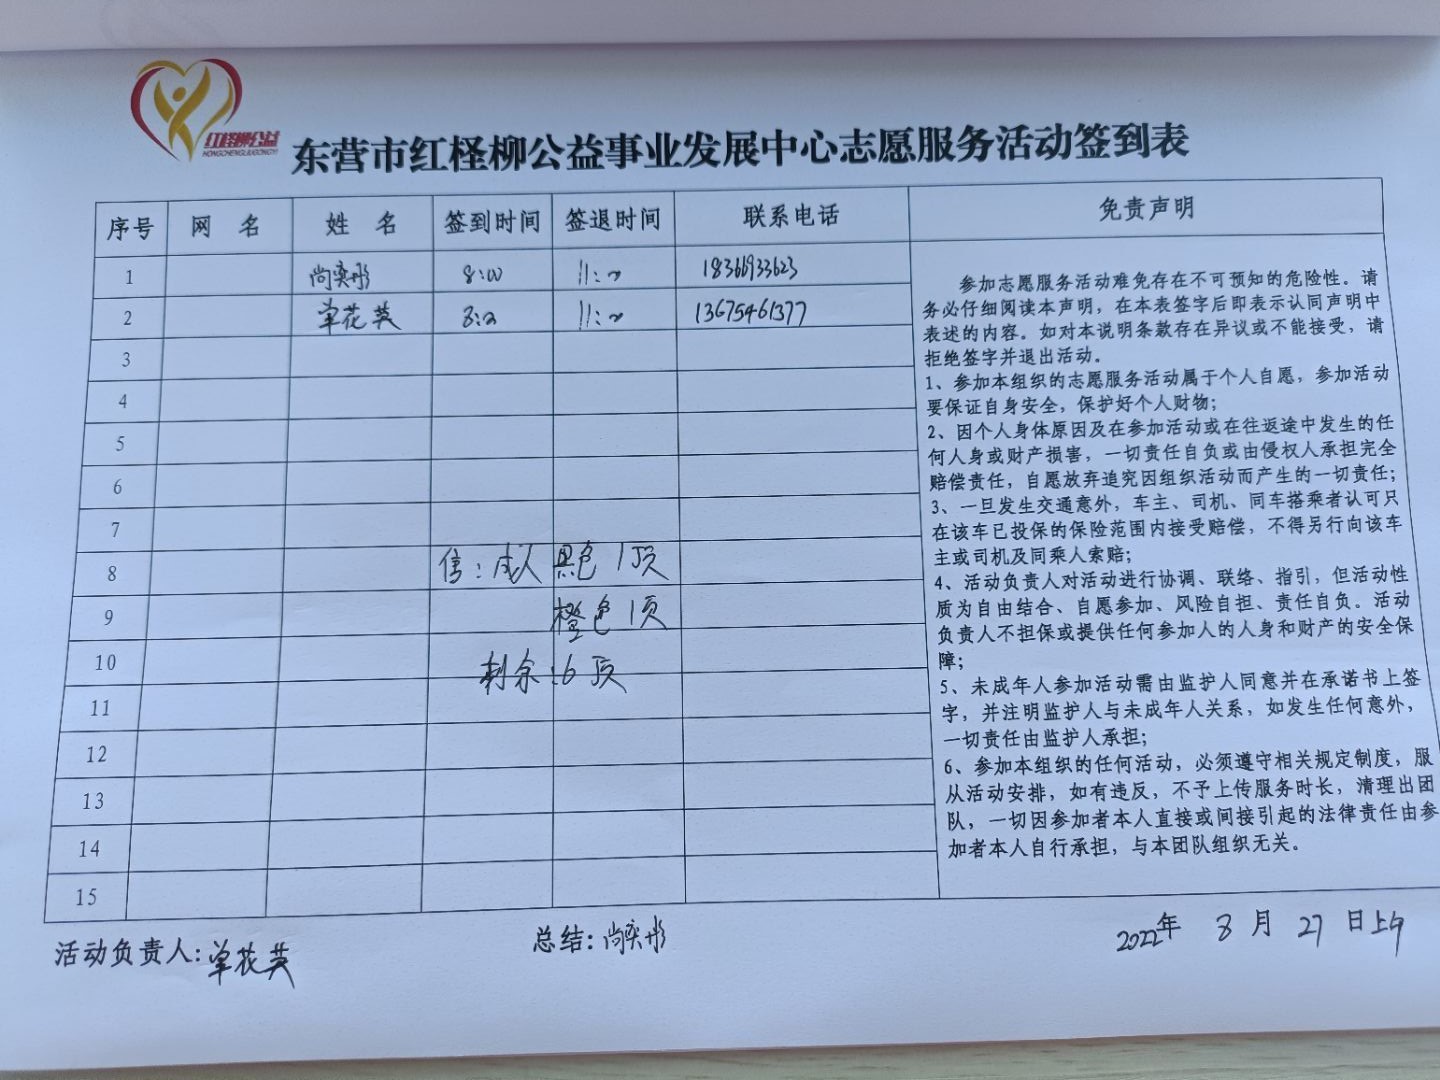 红柽柳公益
HONGCHENGLIUGONGYI
东营市红柽柳公益事业发展中心志愿服务活动签到表
序号 网 名 姓 名 签到时间 签退时间 联系电话 免责声明
1 尚奕彤 8:00 11:00 18366933623
2 单花英 8:00 11:00 13675461377
3
4
5
6
7
8 信：成人 黑色 1顶
9 橙色 1顶
10 剩余：6 顶
11
12
13
14
15
参加志愿服务活动难免存在不可预知的危险性。请
务必仔细阅读本声明，在本表签字后即表示认同声明中
表述的内容。如对本说明条款存在异议或不能接受，请
拒绝签字并退出活动。
1、参加本组织的志愿服务活动属于个人自愿，参加活动
要保证自身安全，保护好个人财物；
2、因个人身体原因及在参加活动或在往返途中发生的任
何人身或财产损害，一切责任自负或由侵权人承担完全
赔偿责任，自愿放弃追究因组织活动而产生的一切责任；
3、一旦发生交通意外，车主、司机、同车搭乘者认可只
在该车已投保的保险范围内接受赔偿，不得另行向该车
主或司机及同乘人索赔；
4、活动负责人对活动进行协调、联络、指引，但活动性
质为自由结合、自愿参加、风险自担、责任自负。活动
负责人不担保或提供任何参加人的人身和财产的安全保
障；
5、未成年人参加活动需由监护人同意并在承诺书上签
字，并注明监护人与未成年人关系，如发生任何意外，
一切责任由监护人承担；
6、参加本组织的任何活动，必须遵守相关规定制度，服
从活动安排，如有违反，不予上传服务时长，清理出团
队，一切因参加者本人直接或间接引起的法律责任由参
加者本人自行承担，与本团队组织无关。
活动负责人：单花英 总结：尚奕彤 2022年 8 月 27 日上午